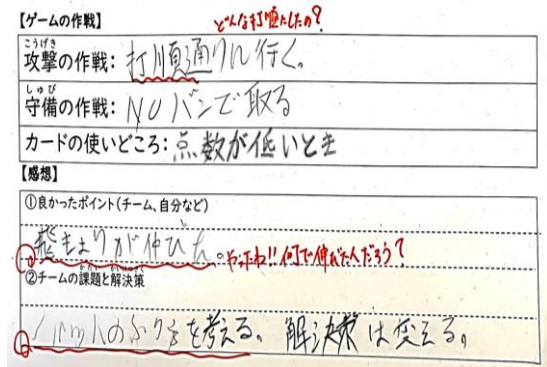 【ゲームの作戦】 どんな打順にしたの?
こうげき
攻撃の作戦: 打順通りに行く。
しゅび
守備の作戦: NOバンで取る
カードの使いどころ: 点数が低いとき
【感想】
①良かったポイント(チーム、自分など)
飛きょりが伸びた。やったね!!何で伸びたんだろう?
②チームの課題と解決策
バットのふり方を考える。解決策は変える。